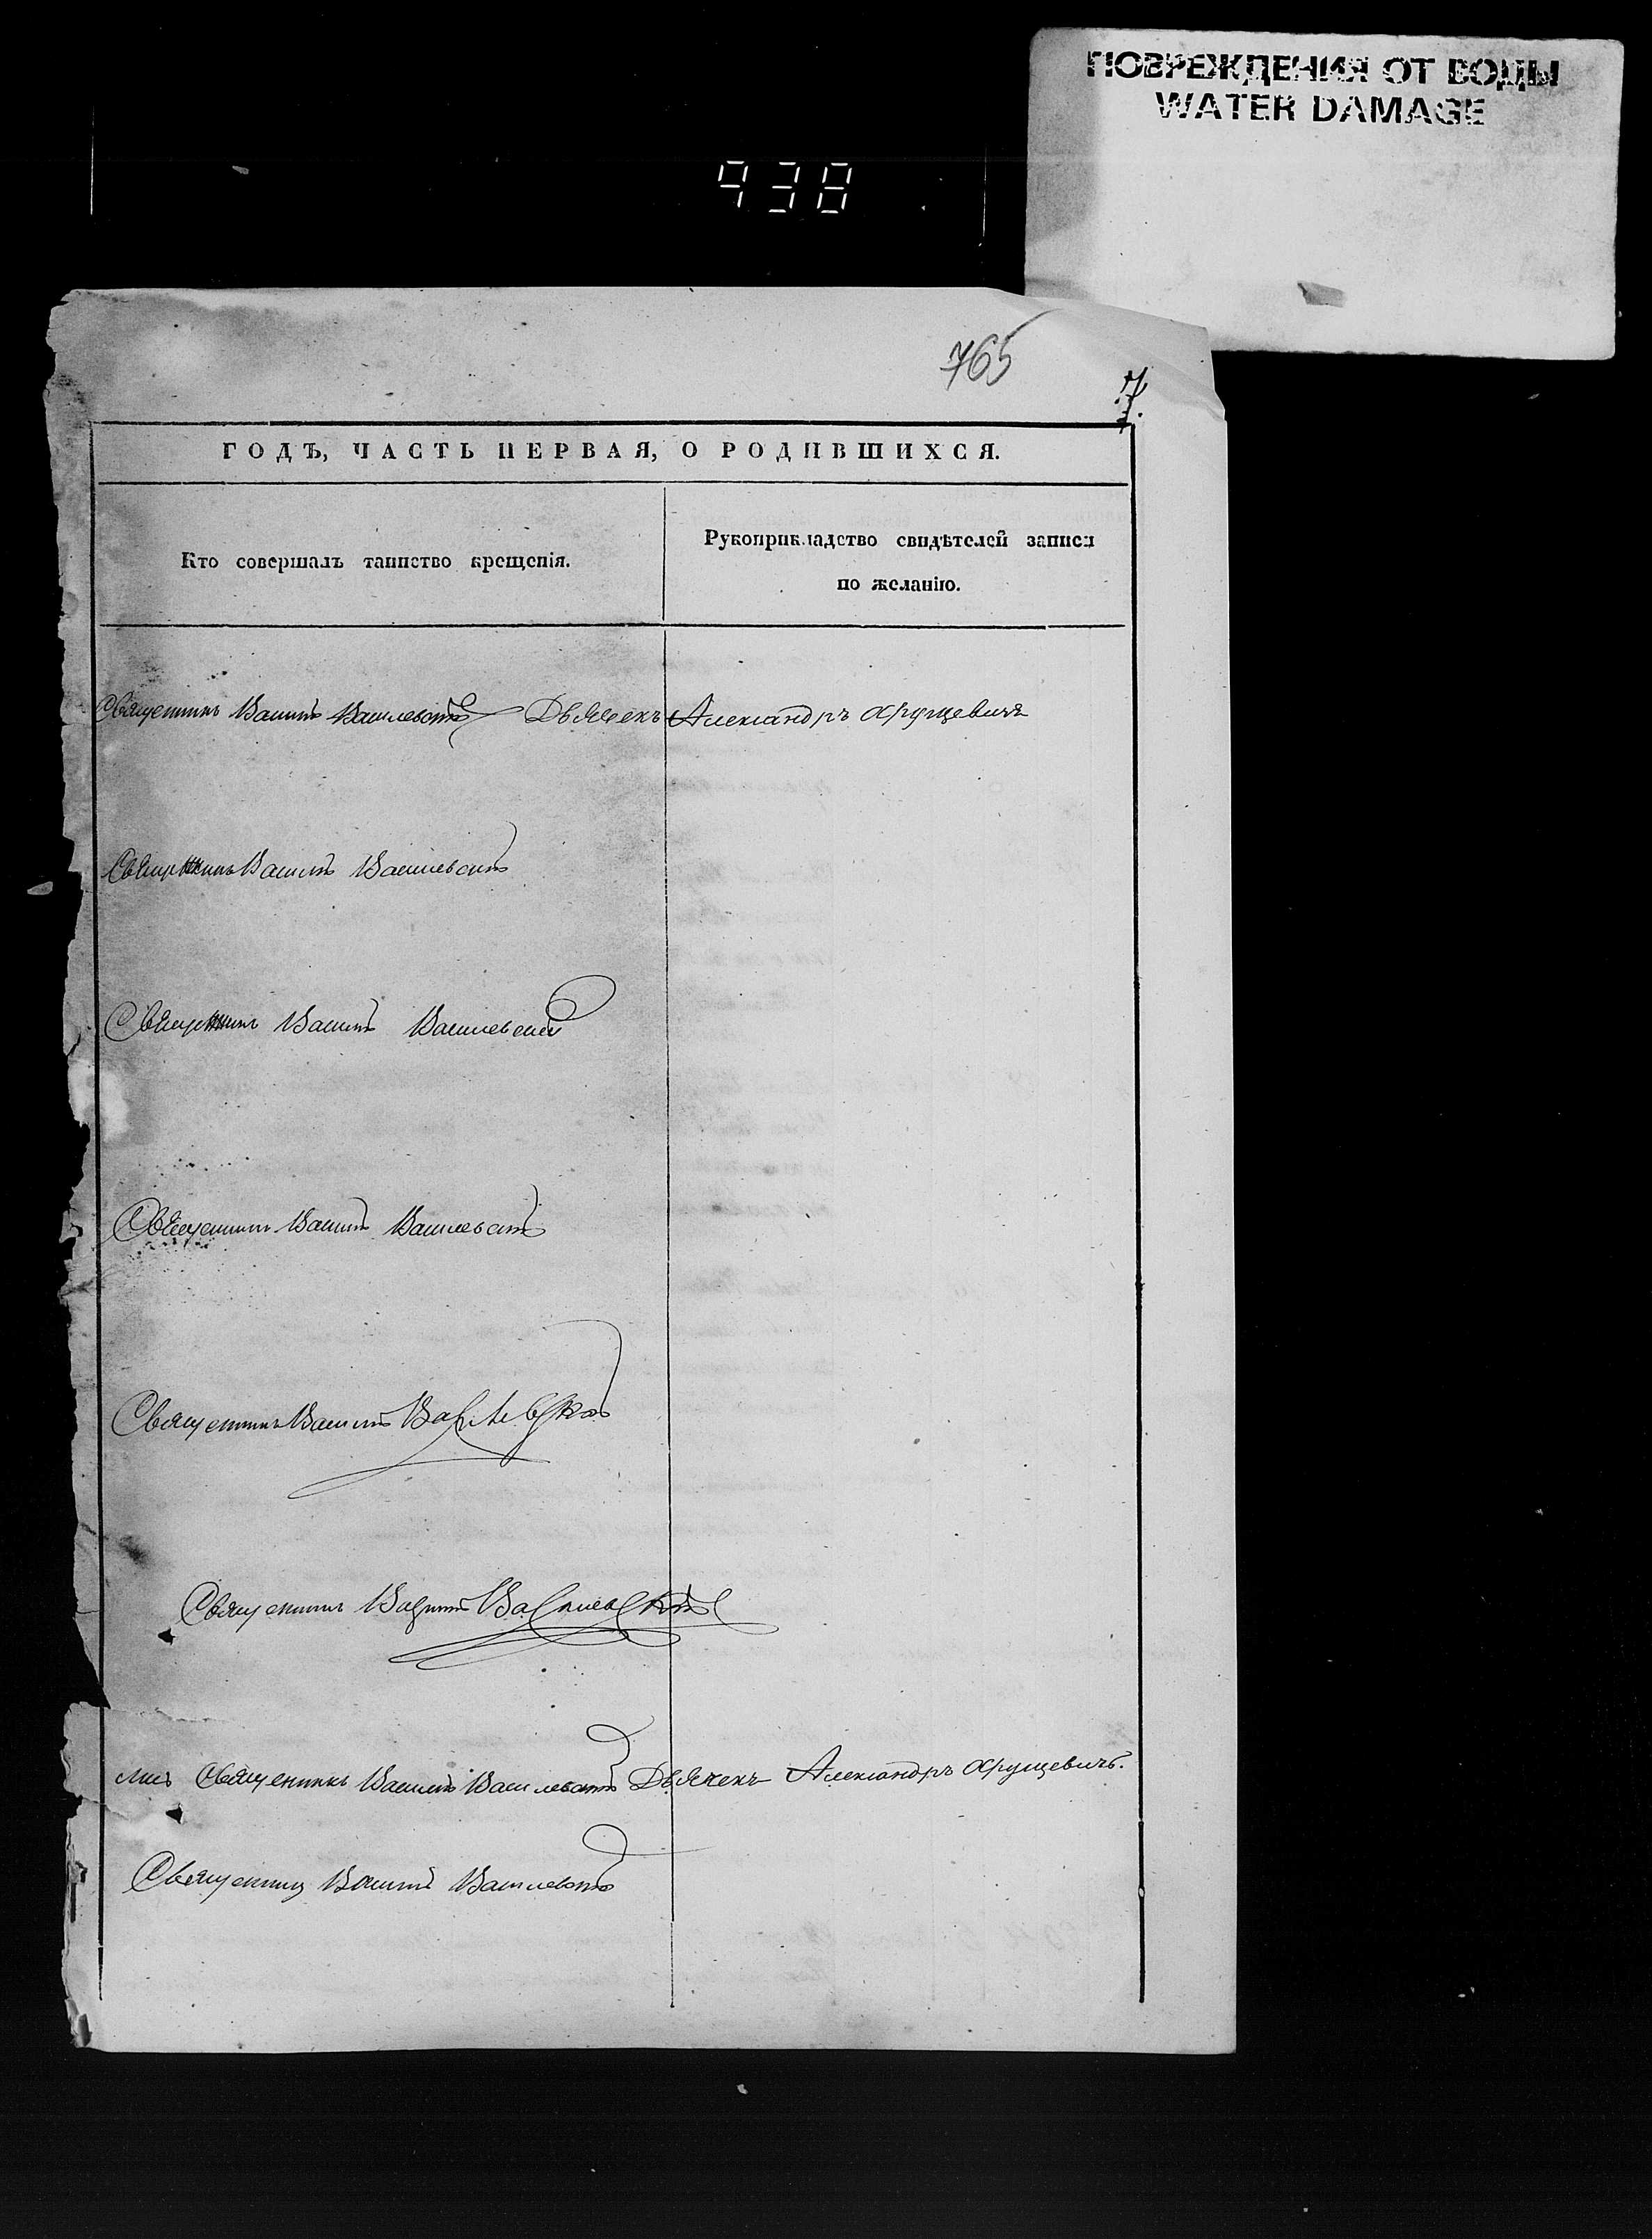 ПОВРЕЖДЕНИЯ ОТ ВОДЫ
WATER DAMAGE
938
765
7.
ГОДЪ, ЧАСТЬ ПЕРВАЯ, О РОДИВШИХСЯ.
Кто совершалъ таинство крещенія.
Рукоприкладство свидѣтелей записи
по желанію.
Священникъ Василій Василевскій Дьячекъ Александръ Хрущевичъ
Священникъ Василій Василевскій
Священникъ Василій Василевскій
Священникъ Василій Василевскій
Священникъ Василій Василевскій
Священникъ Василій Василевскій
Священникъ Василій Василевскій Дьячекъ Александръ Хрущевичъ.
Священникъ Василій Василевскій